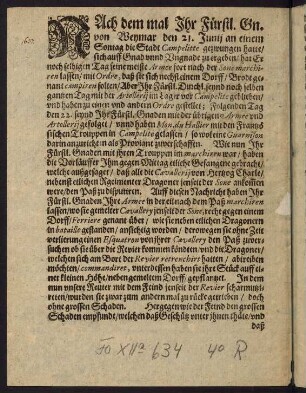 NAch dem mal Ihr Fürstl. Gn.
von Weymar den 21. Junij an einem
Sontag die Stadt Campelitte gezwungen hatte/
sich auff Gnad unnd Ungnade zu ergeben/ hat Er
noch selbigen Tag seine meiste Armee fort nach der Saue marchi-
ren lassen/ mit Ordre, daß sie sich nechst einem Dorff/ Brode ge-
nant campiren solten/ Aber Ihr Fürstl. Durchl. seynd noch selben
gantzen Tag mit der Artelleri im Läger vor Campelitte geblieben/
und haben zu einen und andern Ordre gestellet; Folgenden Tag
den 22. seynd Ihr Fürstl. Gnaden mit der übrigen Armee und
Artellerij gefolget/ unnd haben Mos. du Hallier mit den Frantzö-
sischen Trouppen in Campelitte gelassen/ so wol eine Guarnison
darin an zurichten als Proviant zuwer schaffen. Wie nun Ihr
Fürstl. Gnaden mit ihren Trouppen im marchiren war/ haben
die Vorläuffer Ihm gegen Mittag etliche Gefangene gebracht/
welche außgesaget/ daß alle die Cavallerij von Hertzog Charle/
nebenst etlichen Regimenter Dragoner jenseit der Sone ankossen
weren/ den Paß zu disputiren. Auff diesen Nachricht haben Ihr
Fürstl. Gnaden Ihre Armee in der eil nach dem Paß marchiren
lassen/ wo sie gemelter Cavallery jenseit der Sone, recht gegen einem
Dorff/ Ferriere genant über/ nebst etlichen Dragonern in
bataille gestanden/ ansichtig worden/ derowegen sie ohne Zeit
verlierung einen Esquatron von ihrer Cavallery den Paß zuver
suchen ob sie über die Revier kommen könden/ und die Dragoner/
welchen sich am Bort der Revier retrenchirt hatten/ abtreiben
möchten/ commandiret, unterdessen haben sie ihre Stück auff ei-
ne kleinen Höhe/ neben gemeltem Dorff gepflantzet. In dem
nun unsere Reuter mit dem Feind jenseit der Revier scharmu-
zirten/ wurden sie zwar zum andern mal zu rücke getrieben/ doch
ohne grossen Schaden. Hergegen wie der Feind den grossen
Schaden empfundt/ welchen daß Geschütz unter ihnen thäte/ und
daß
XIIa 634 4o R